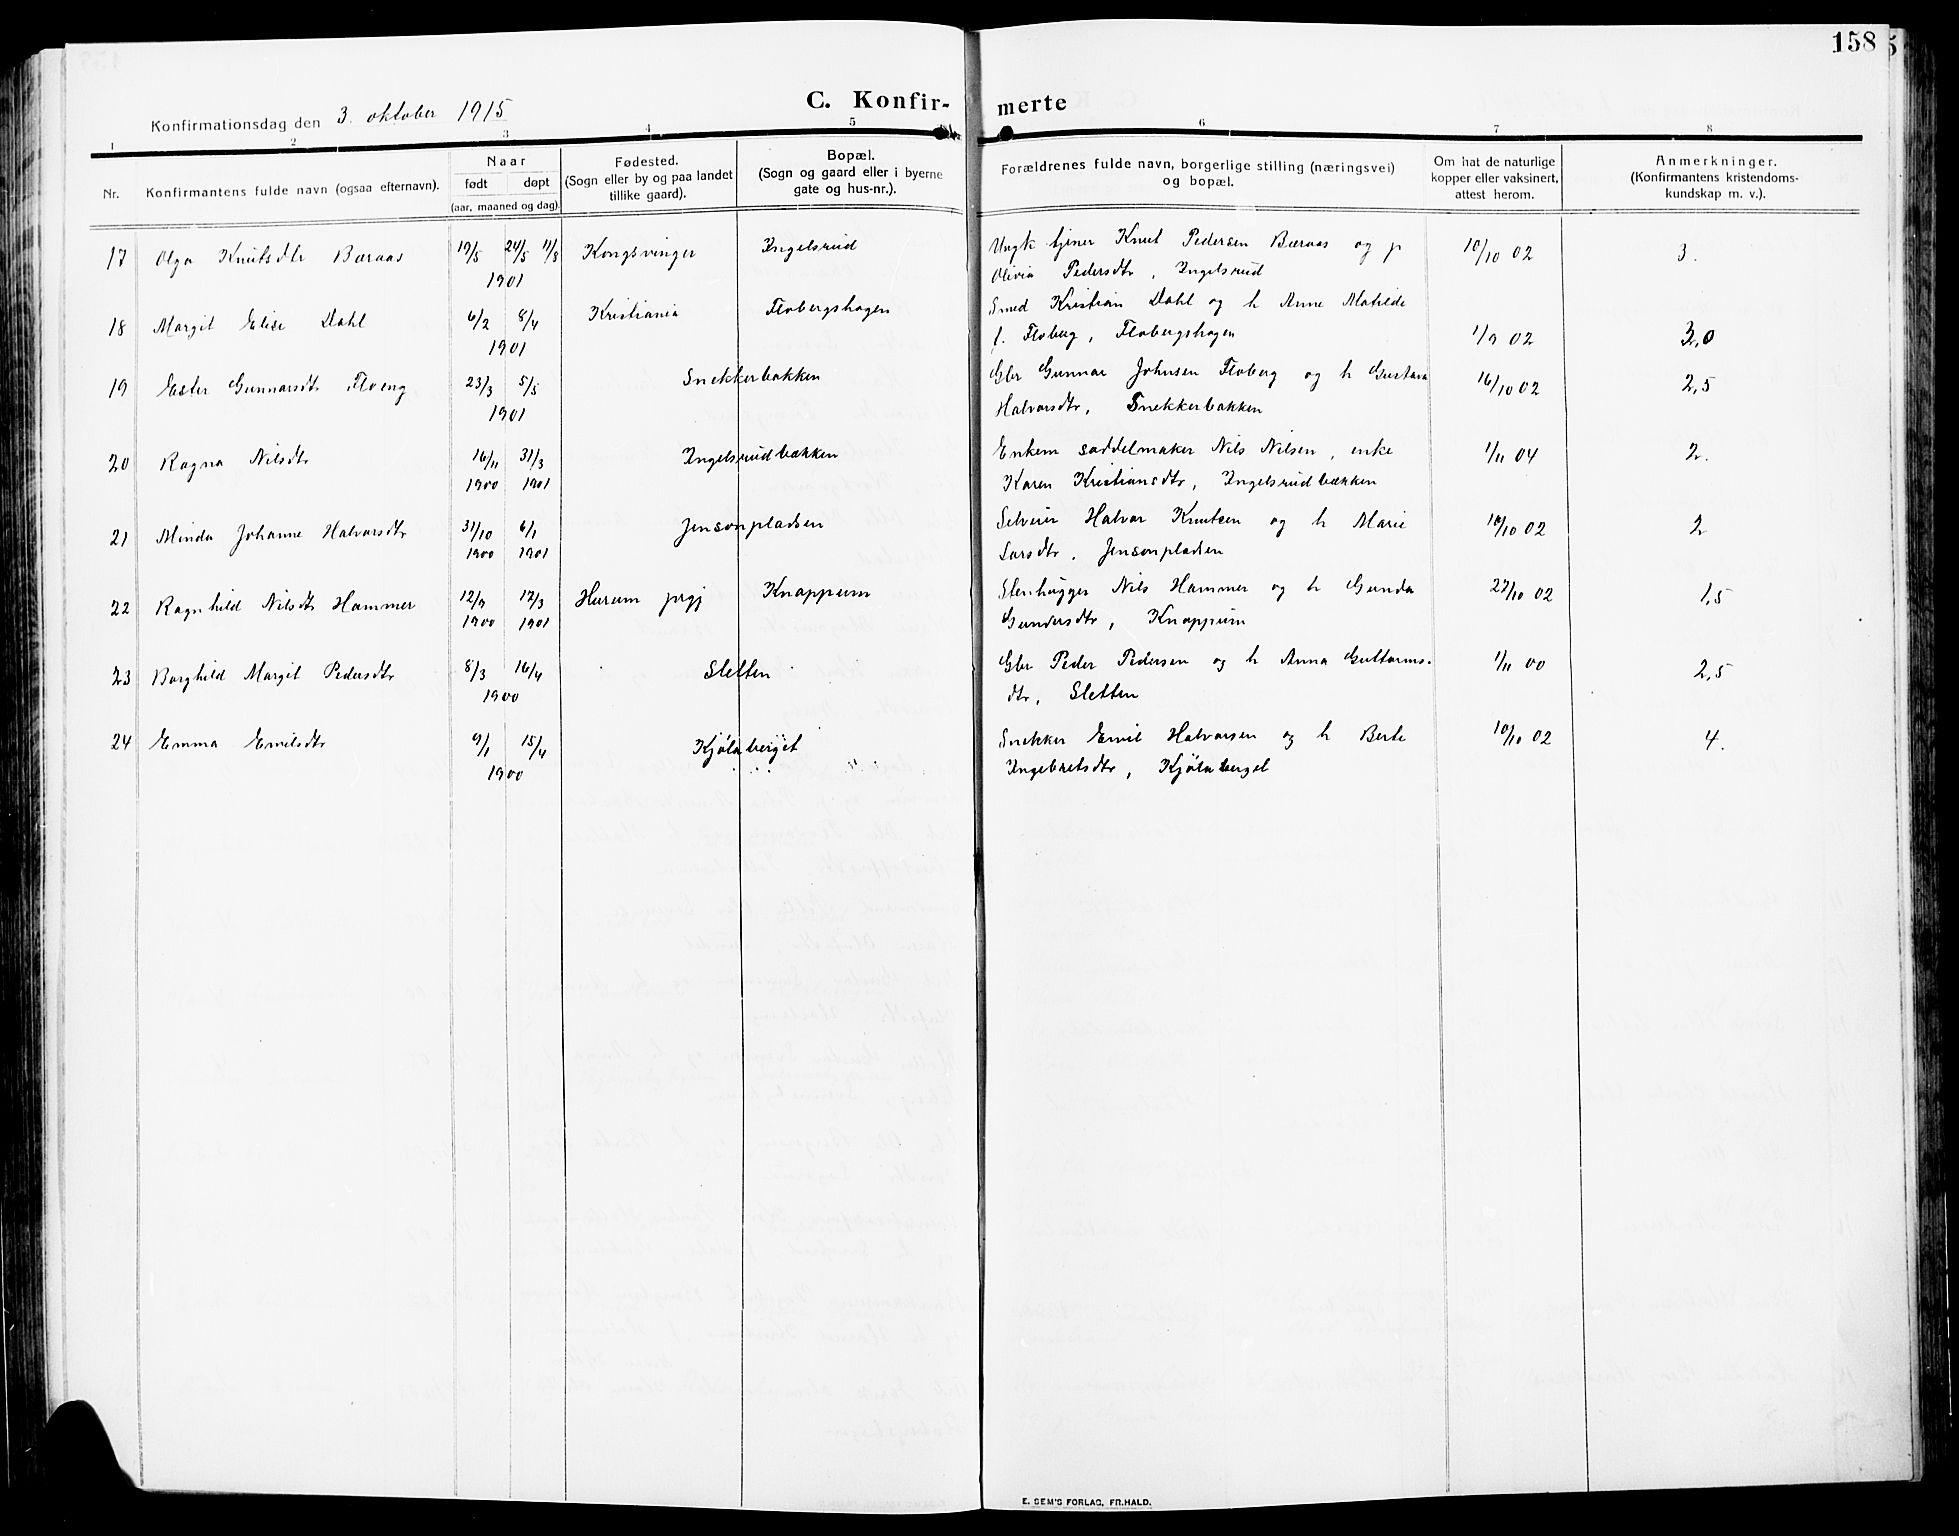 158
C. Konfir-
merte
Konfirmationsdag den 3. oktober 1915
1 2 3 4 5 6 7 8
Nr.
Konfirmantens fulde navn (ogsaa efternavn).
Naar
født døpt
(aar, maaned og dag).
Fødested.
(Sogn eller by og paa landet
tillike gaard).
Bopæl.
(Sogn og gaard eller i byerne
gate og hus-nr.).
Forældrenes fulde navn, borgerlige stilling (næringsvei)
og bopæl.
Om hat de naturlige
kopper eller vaksinert,
attest herom.
Anmerkninger.
(Konfirmantens kristendoms-
kundskap m. v.).
17 Olga Knutsdtr Bæraas 19/5 24/5 11/8 Kongsvinger Ingelsrud Ungk tjener Knut Pedersen Bæraas og p 10/10 02 3.
1901 Olivia Pedersdtr, Ingelsrud
18 Margit Elise Dahl 6/2 8/4 Kristiania Flobergshagen Smed Kristian Dahl og h Anne Matilde
1901 f. Floberg, Flobergshagen 1/9 02 3,0
19 Ester Gunnarsdtr Floeng 23/3 5/5 Snekkerbakken Gbr Gunnar Johnsen Floberg og h Gustava 16/10 02 2,5
1901 Halvorsdtr, Snekkerbakken
20 Ragna Nilsdtr 16/11 31/3 Ingelsrudbækken Enkem saddelmaker Nils Nilsen, enke 1/11 04 2.
1900 1901 Karen Kristiansdtr, Ingelsrudbækken
21 Minda Johanne Halvorsdtr 31/10 6/1 Jensonpladsen Selveier Halvor Knutsen og h Marie 10/10 02 2
1900 1901 Larsdtr, Jensonpladsen
22 Ragnhild Nilsdtr Hammer 12/9 17/3 Hurum prgj Knappum Stenhugger Nils Hammer og h Gunda 27/10 02 1,5
1900 1901 Gundersdtr, Knappum
23 Borghild Margit Pedersdtr 8/3 16/4 Sletten Gbr Peder Pedersen og h Anna Guttorms- 1/11 00 2,5
1900 dtr, Sletten
24 Emma Emilsdtr 9/1 15/4 Kjølaberget Snekker Emil Halvorsen og h Berte 10/10 02 4.
1900 Ingebretsdtr, Kjølaberget
E. SEM'S FORLAG, FR.HALD.